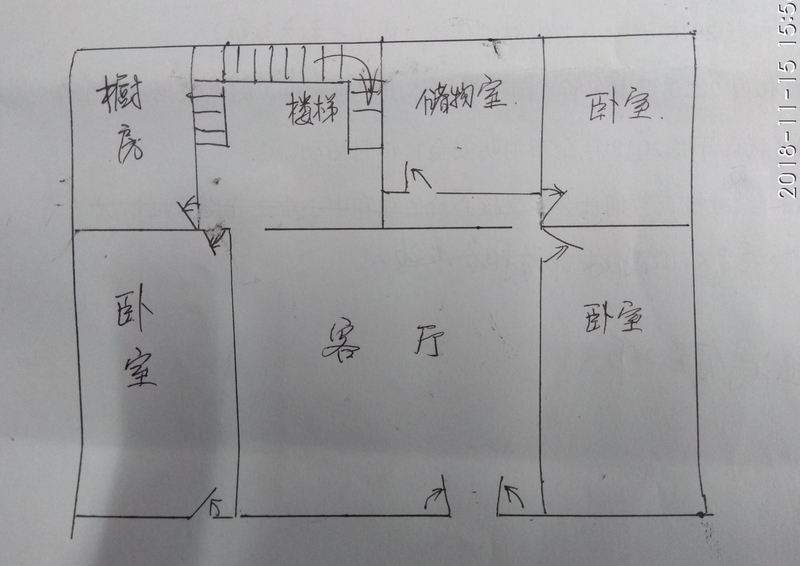 橱房
楼梯
储物室.
卧室.
卧室
客厅
卧室
2018-11-15 15:5